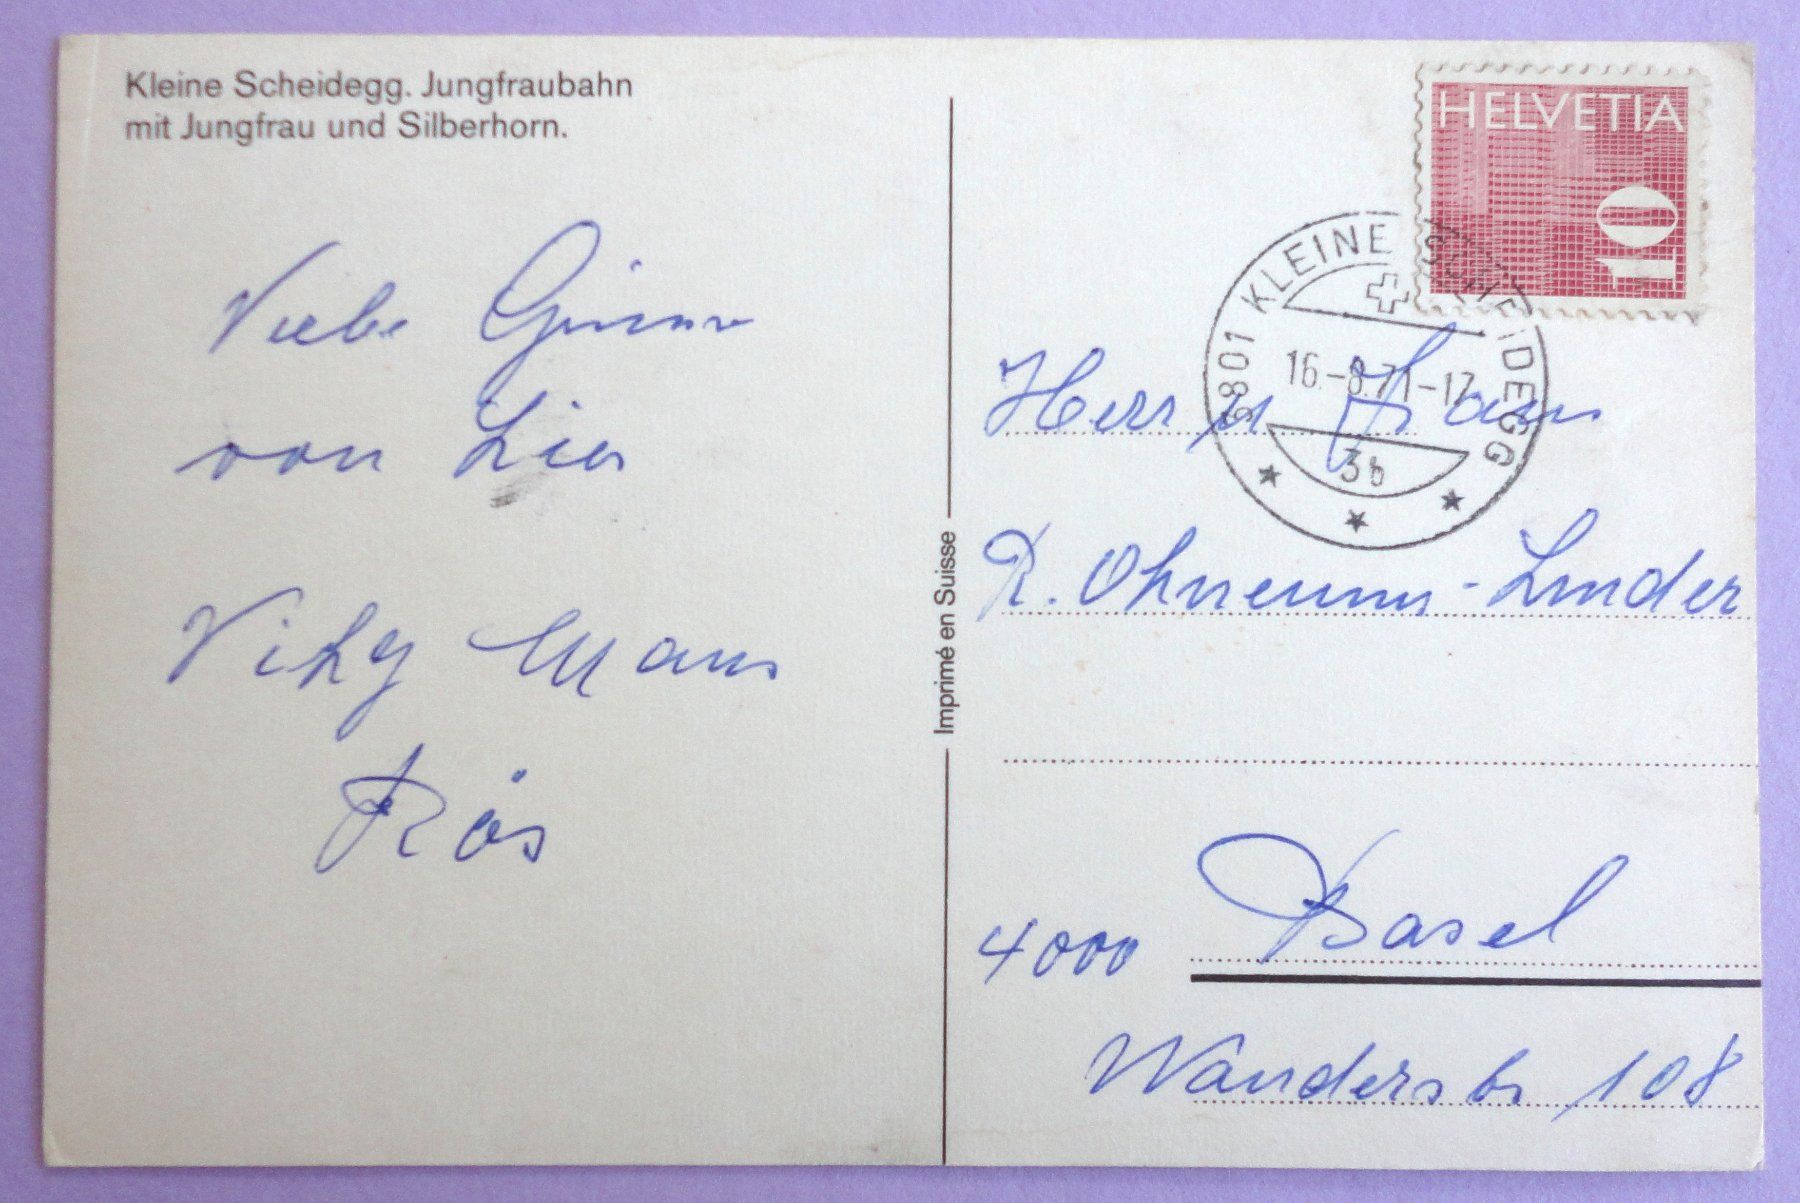 Kleine Scheidegg. Jungfraubahn
mit Jungfrau und Silberhorn.
von
Viky
Rös
Imprimé en Suisse
HELVETIA
10
KLEINE SCHEIDEGG
16.-8.71-17
3b
Herr u
R. Ohnemus-Linder
4000 Basel
Wanderstr 108